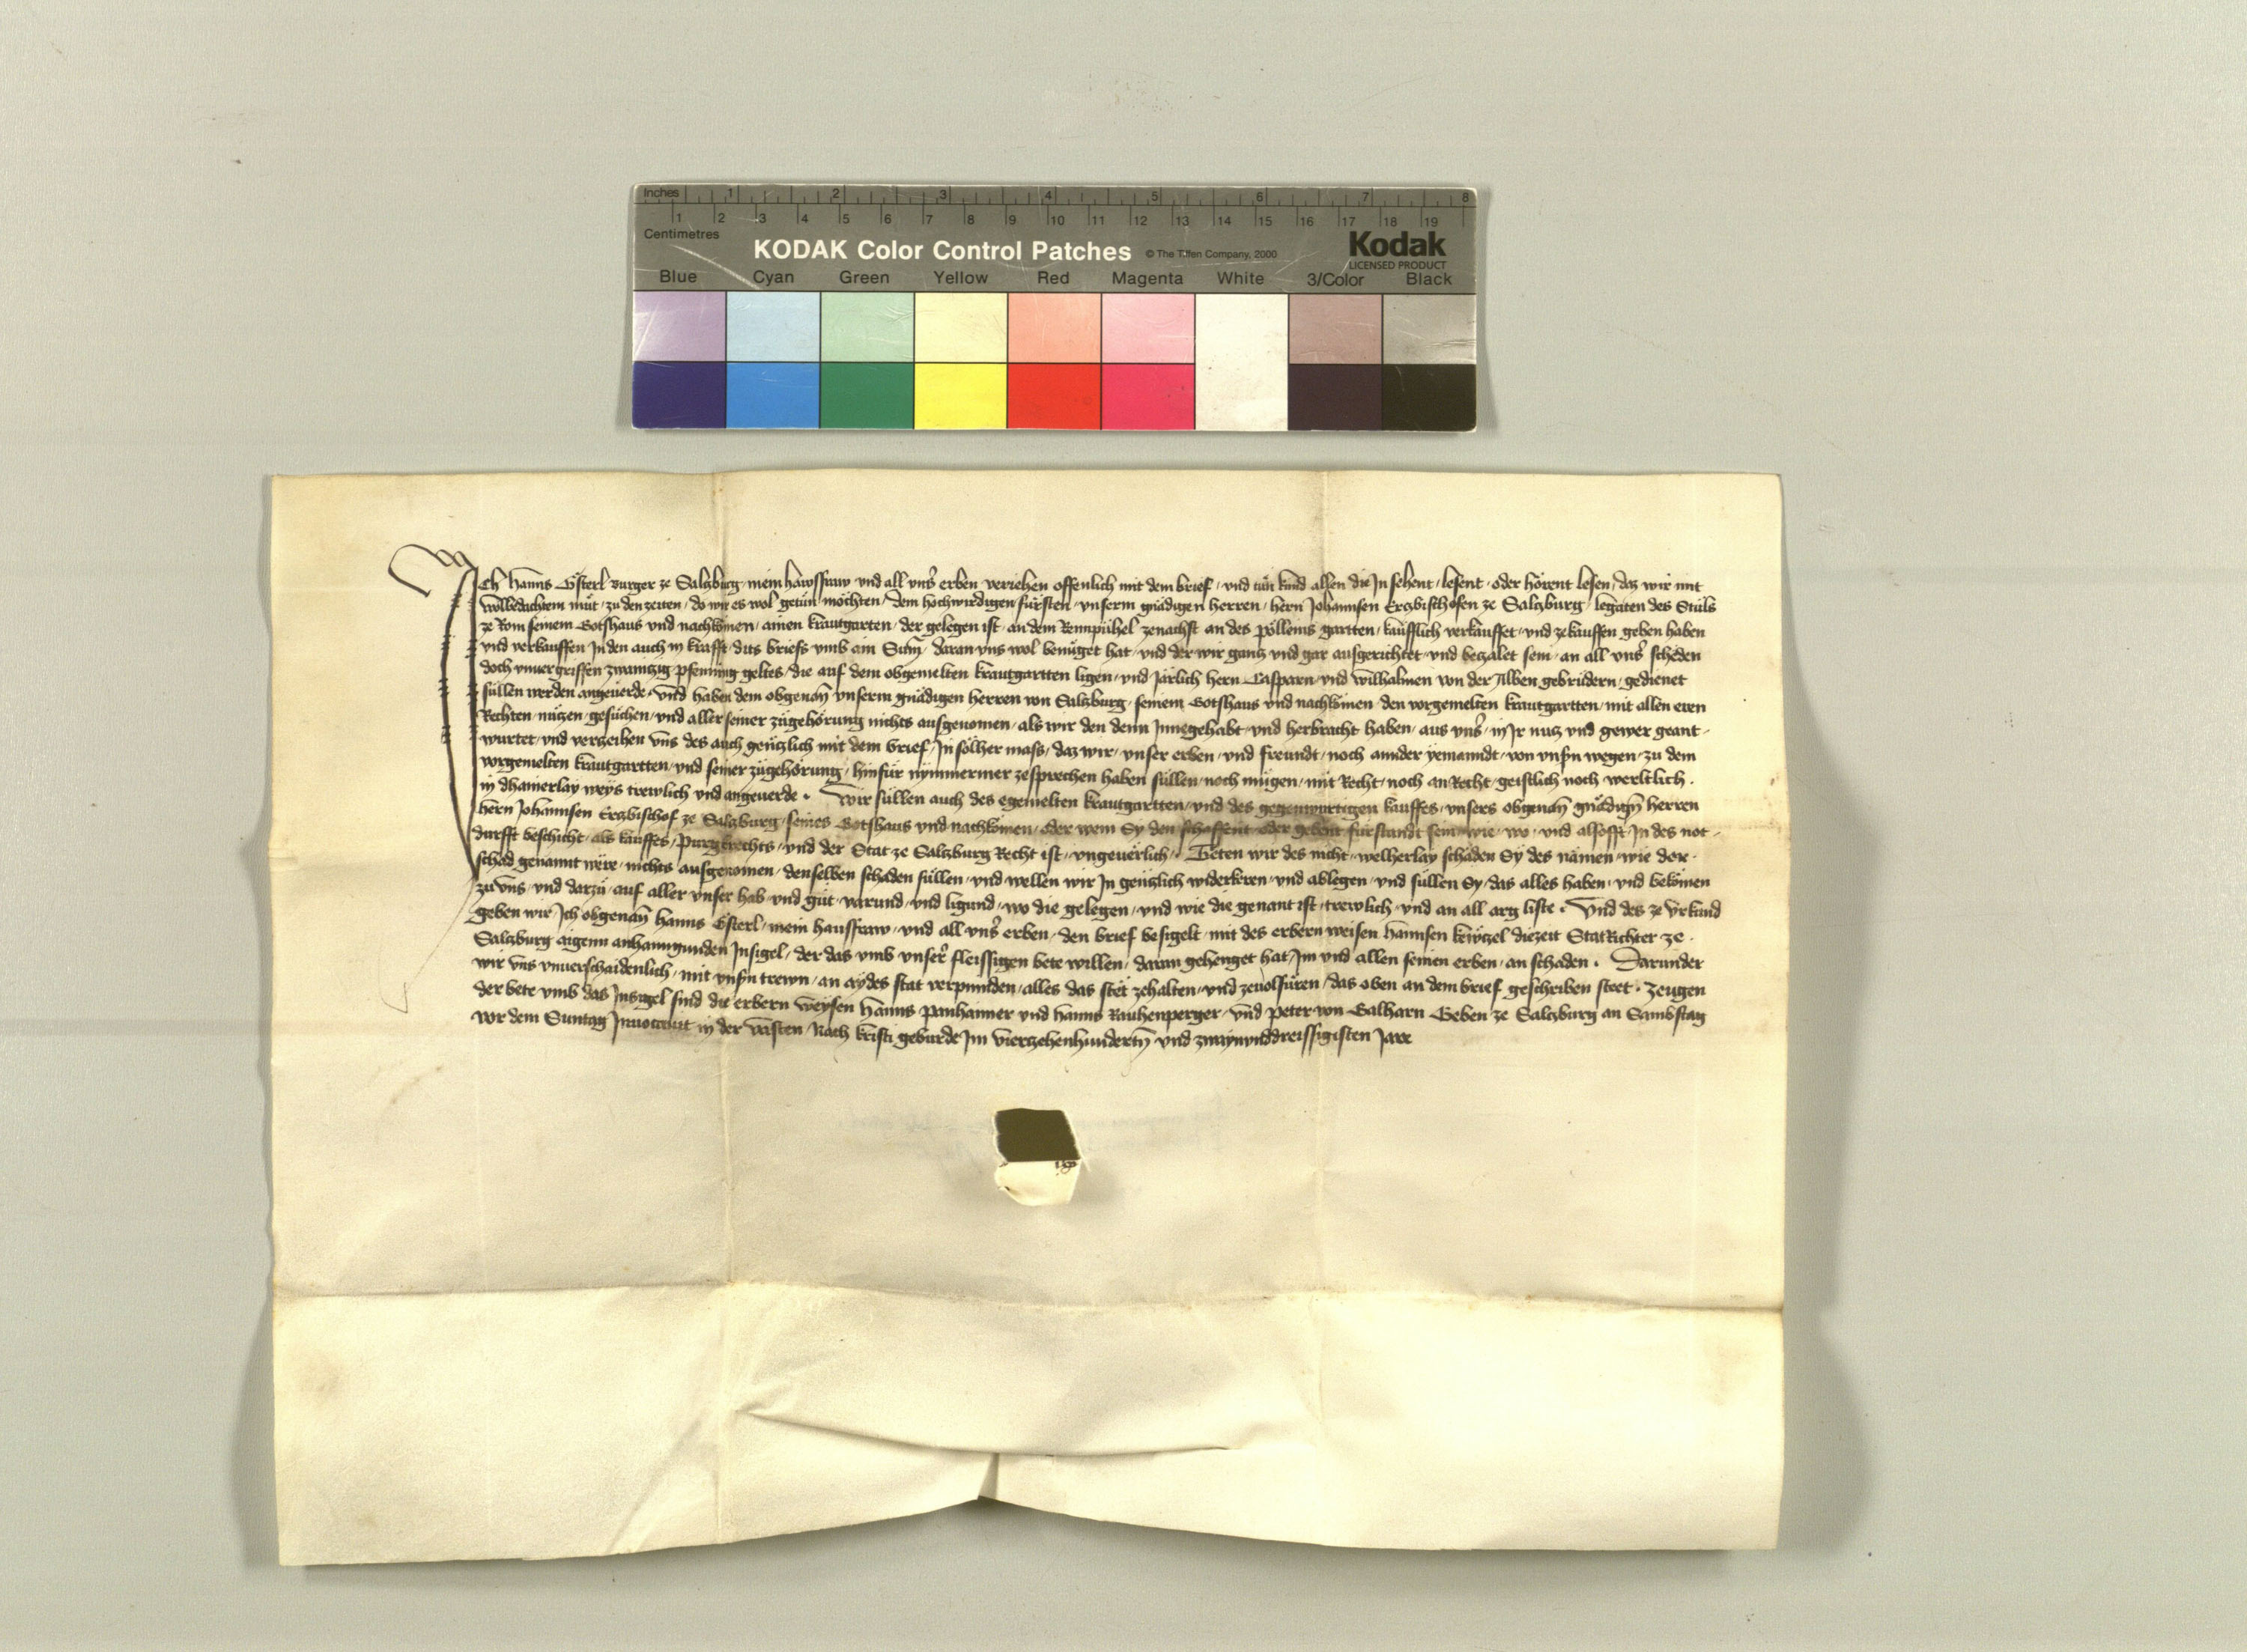 Inches 1 2 3 4 5 6 7 8
1 2 3 4 5 6 7 8 9 10 11 12 13 14 15 16 17 18 19
Centimetres
KODAK Color Control Patches © The Tiffen Company, 2000 Kodak
LICENSED PRODUCT
Blue Cyan Green Yellow Red Magenta White 3/Color Black
Ich Hanns Österl burger ze Salzburg mein hawsfraw vnd all vnsˀ erben veriehen offenlich mit dem brief vnd tün kund allen die In sehent lesent oder hörent lesen daz wir mit
wolbedachtem müt zu den zeiten do wir es wol getün möchten dem hochwirdigen fürsten vnserm gnädigen herren hern Johannsen Erzbischofen ze Salzburg legaten des Stüls
ze Rom seinem Gotshaus vnd nachkomen ainen krautgarten der gelegen ist an dem Rennpühel zenachst an des Pöllems gartten kaufflich verkauffet vnd zekauffen geben haben
vnd verkauffen In den auch in krafft dits briefs vmb ain Sum̄ daran vns wol benüget hat vnd der wir ganz vnd gar ausgerichtet vnd bezalet sein an all vnsˀ scheden
doch vnuergriffen zwainzig pfenning geltes die auf dem obgemelten krautgartten ligen vnd järlich hern Casparn vnd wilhalmen von der Alben gebrüdern gedienet
süllen werden angeuerde vnd haben dem obgenan̄ vnserm gnädigen herren von Salzburg seinem Gotshaus vnd nachkomen den vorgemelten krautgartten mit allen eren
Rechten nüzen gesüchen vnd aller seiner zügehörung nichts ausgenomen als wir den denn Innegehabt vnd herbracht haben aus vnsˀ in Ir nuz vnd gewer geant
wurtet vnd verzeihen vns des auch genzlich mit dem brief In sölher mass daz wir vnser erben vnd freundt noch annder yemanndt von vnsn̄ wegen zu dem
vorgemelten krautgartten vnd seiner zügehörung hinfür nymmermer zesprechen haben süllen noch mügen mit Recht noch an Recht geistlich noch werltlich
in dhainerlay weys trewlich vnd angeuerde . Wir süllen auch des egemelten krautgartten vnd des gegenwürtigen kauffes vnsers obgenan̄ gnädign̄ herren
hern Johannsen Erzbischof ze Salzburg seines Gotshaus vnd nachkomen oder wem Sy den schaffent oder gebent fürstandt sein wie wo vnd alsofft In des not
durfft beschicht als kauffes Purgkrechts vnd der Stat ze Salzburg Recht ist vngeuerlich Teten wir des nicht welherlay schäden Sy des nämen wie der
schad genannt were nichts ausgenomen denselben schaden süllen vnd wellen wir In genzlich widerkeren vnd ablegen vnd süllen Sy das alles haben vnd bekomen
zu vns vnd darzü auf aller vnser hab vnd güt varund vnd ligund wo die gelegen vnd wie die genant ist trewlich vnd an all arg liste . Vnd des ze vrkund
geben wir Ich obgenan̄ Hanns Österl mein hausfraw vnd all vnsˀ erben den brief besigelt mit des erbern weisen Hannsen diezeit StatRichter ze
Salzburg aigenn anhanngunden Insigel der das vmb vnserˀ fleissigen bete willen daran gehenget hat Im vnd allen seinen erben an schaden . Darunder
wir vns vnuerschaidenlich mit vnsn̄ trewn an aydes stat verpunden alles das stet zehalten vnd zeuolfüren das oben an dem brief geschriben steet . Zeugen
der bete vmb das Insigel sind die erbern weysen Hanns Panhaimer vnd Hanns Rauhenperger vnd Peter von Galharn Geben ze Salzburg an Sambstag
vor dem Suntag Inuocauit in der vasten Nach kristi geburde Im vierzehenhundertn̄ vnd zwaynunddreissigisten Jare